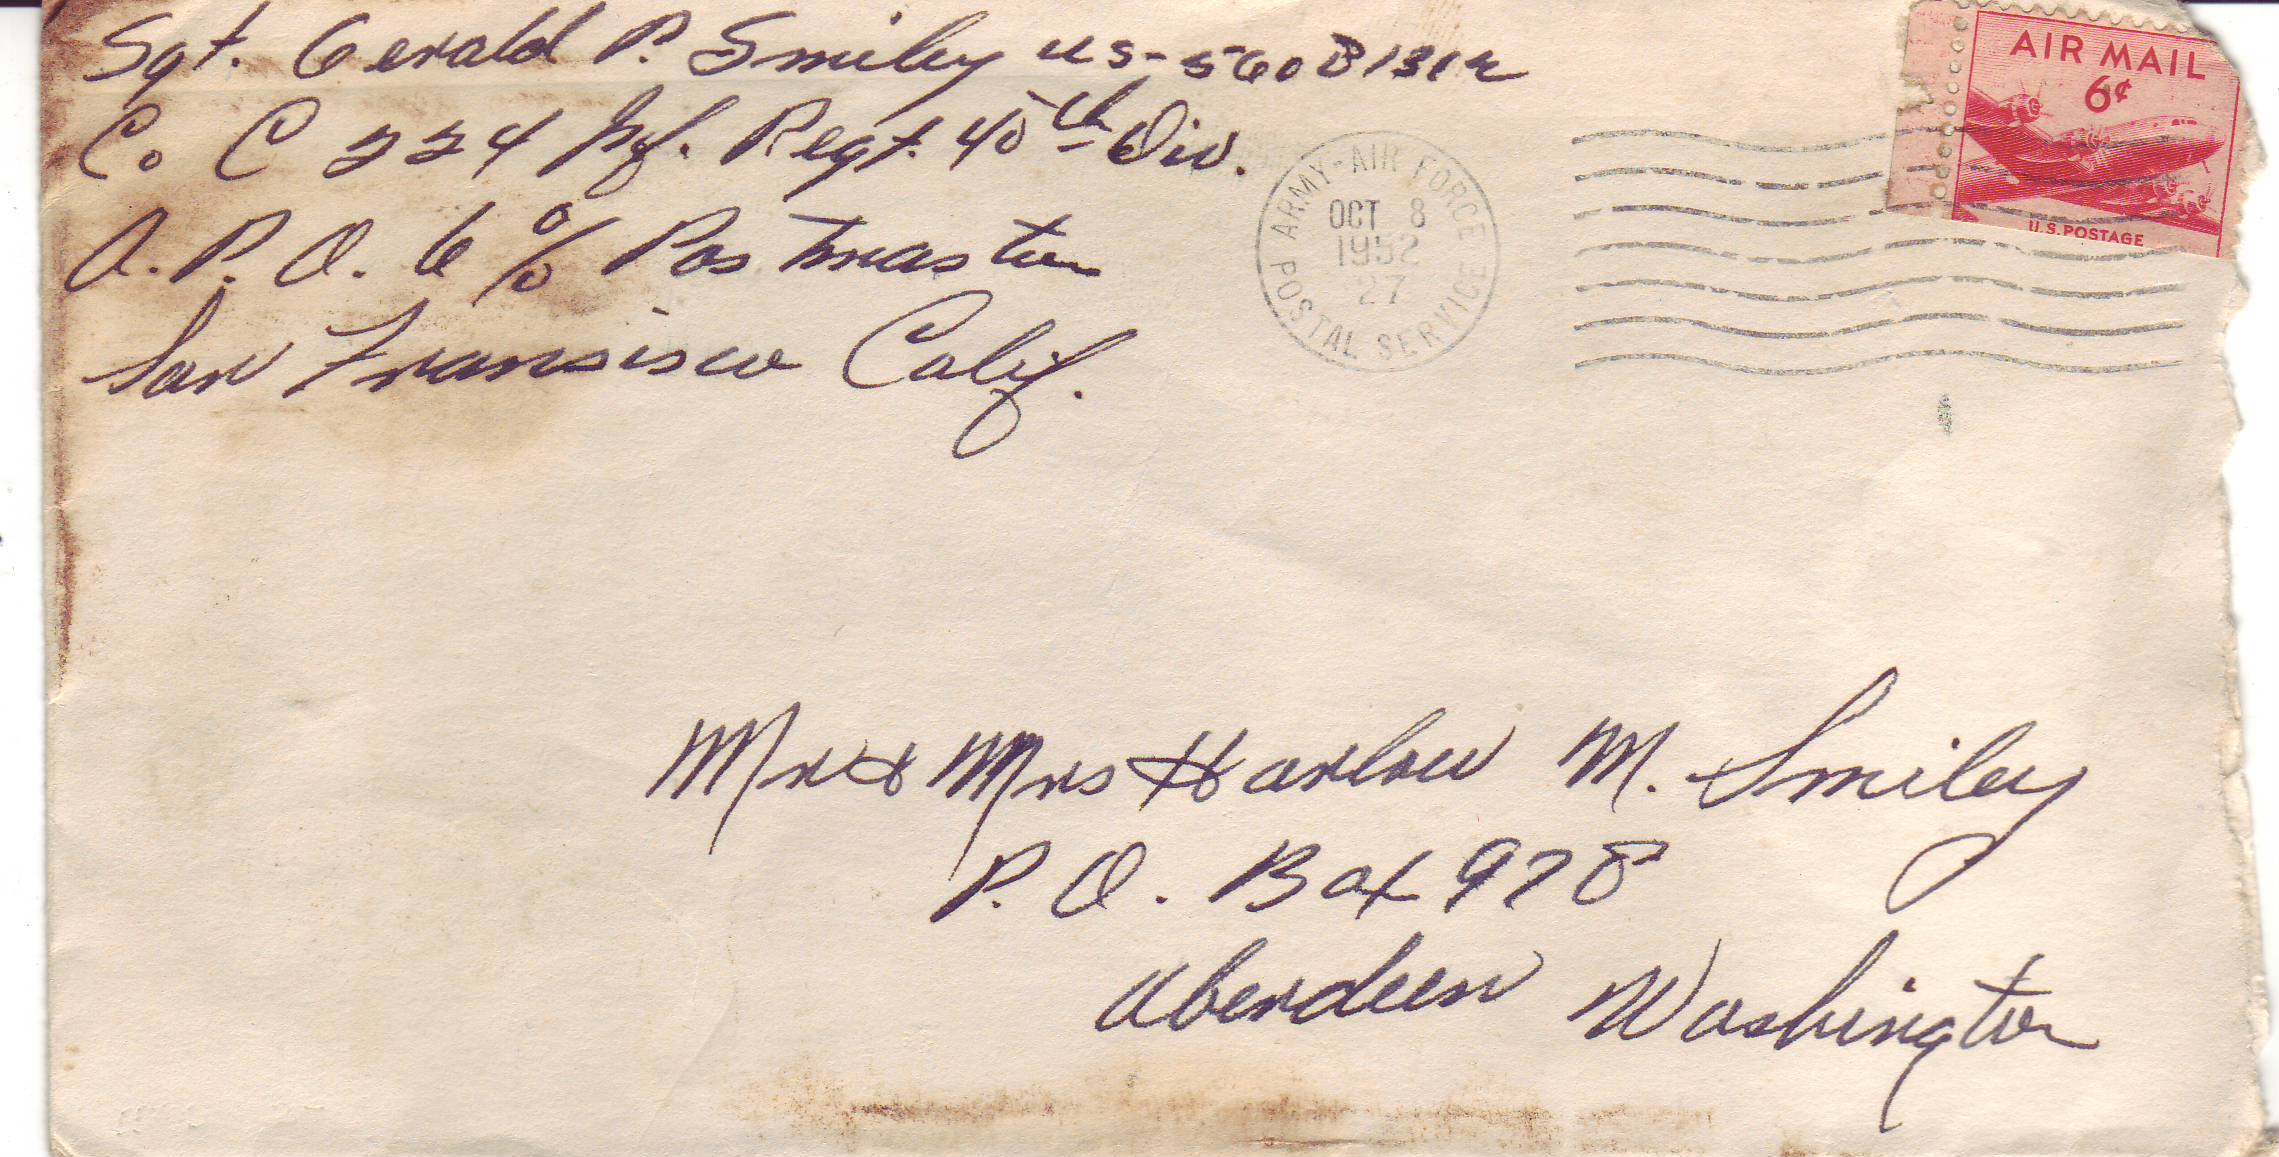 Sgt. Gerald P. Smiley US-56081312
Co C 224 Inf. Regt. 40th Div.
A.P.O. 6 % Postmaster
San Fransisco Calif.
ARMY-AIR FORCE
POSTAL SERVICE
OCT 8
1952
27
AIR MAIL
6¢
U.S. POSTAGE
Mr & Mrs Harlow M. Smiley
P.O. Box 978
Aberdeen Washington